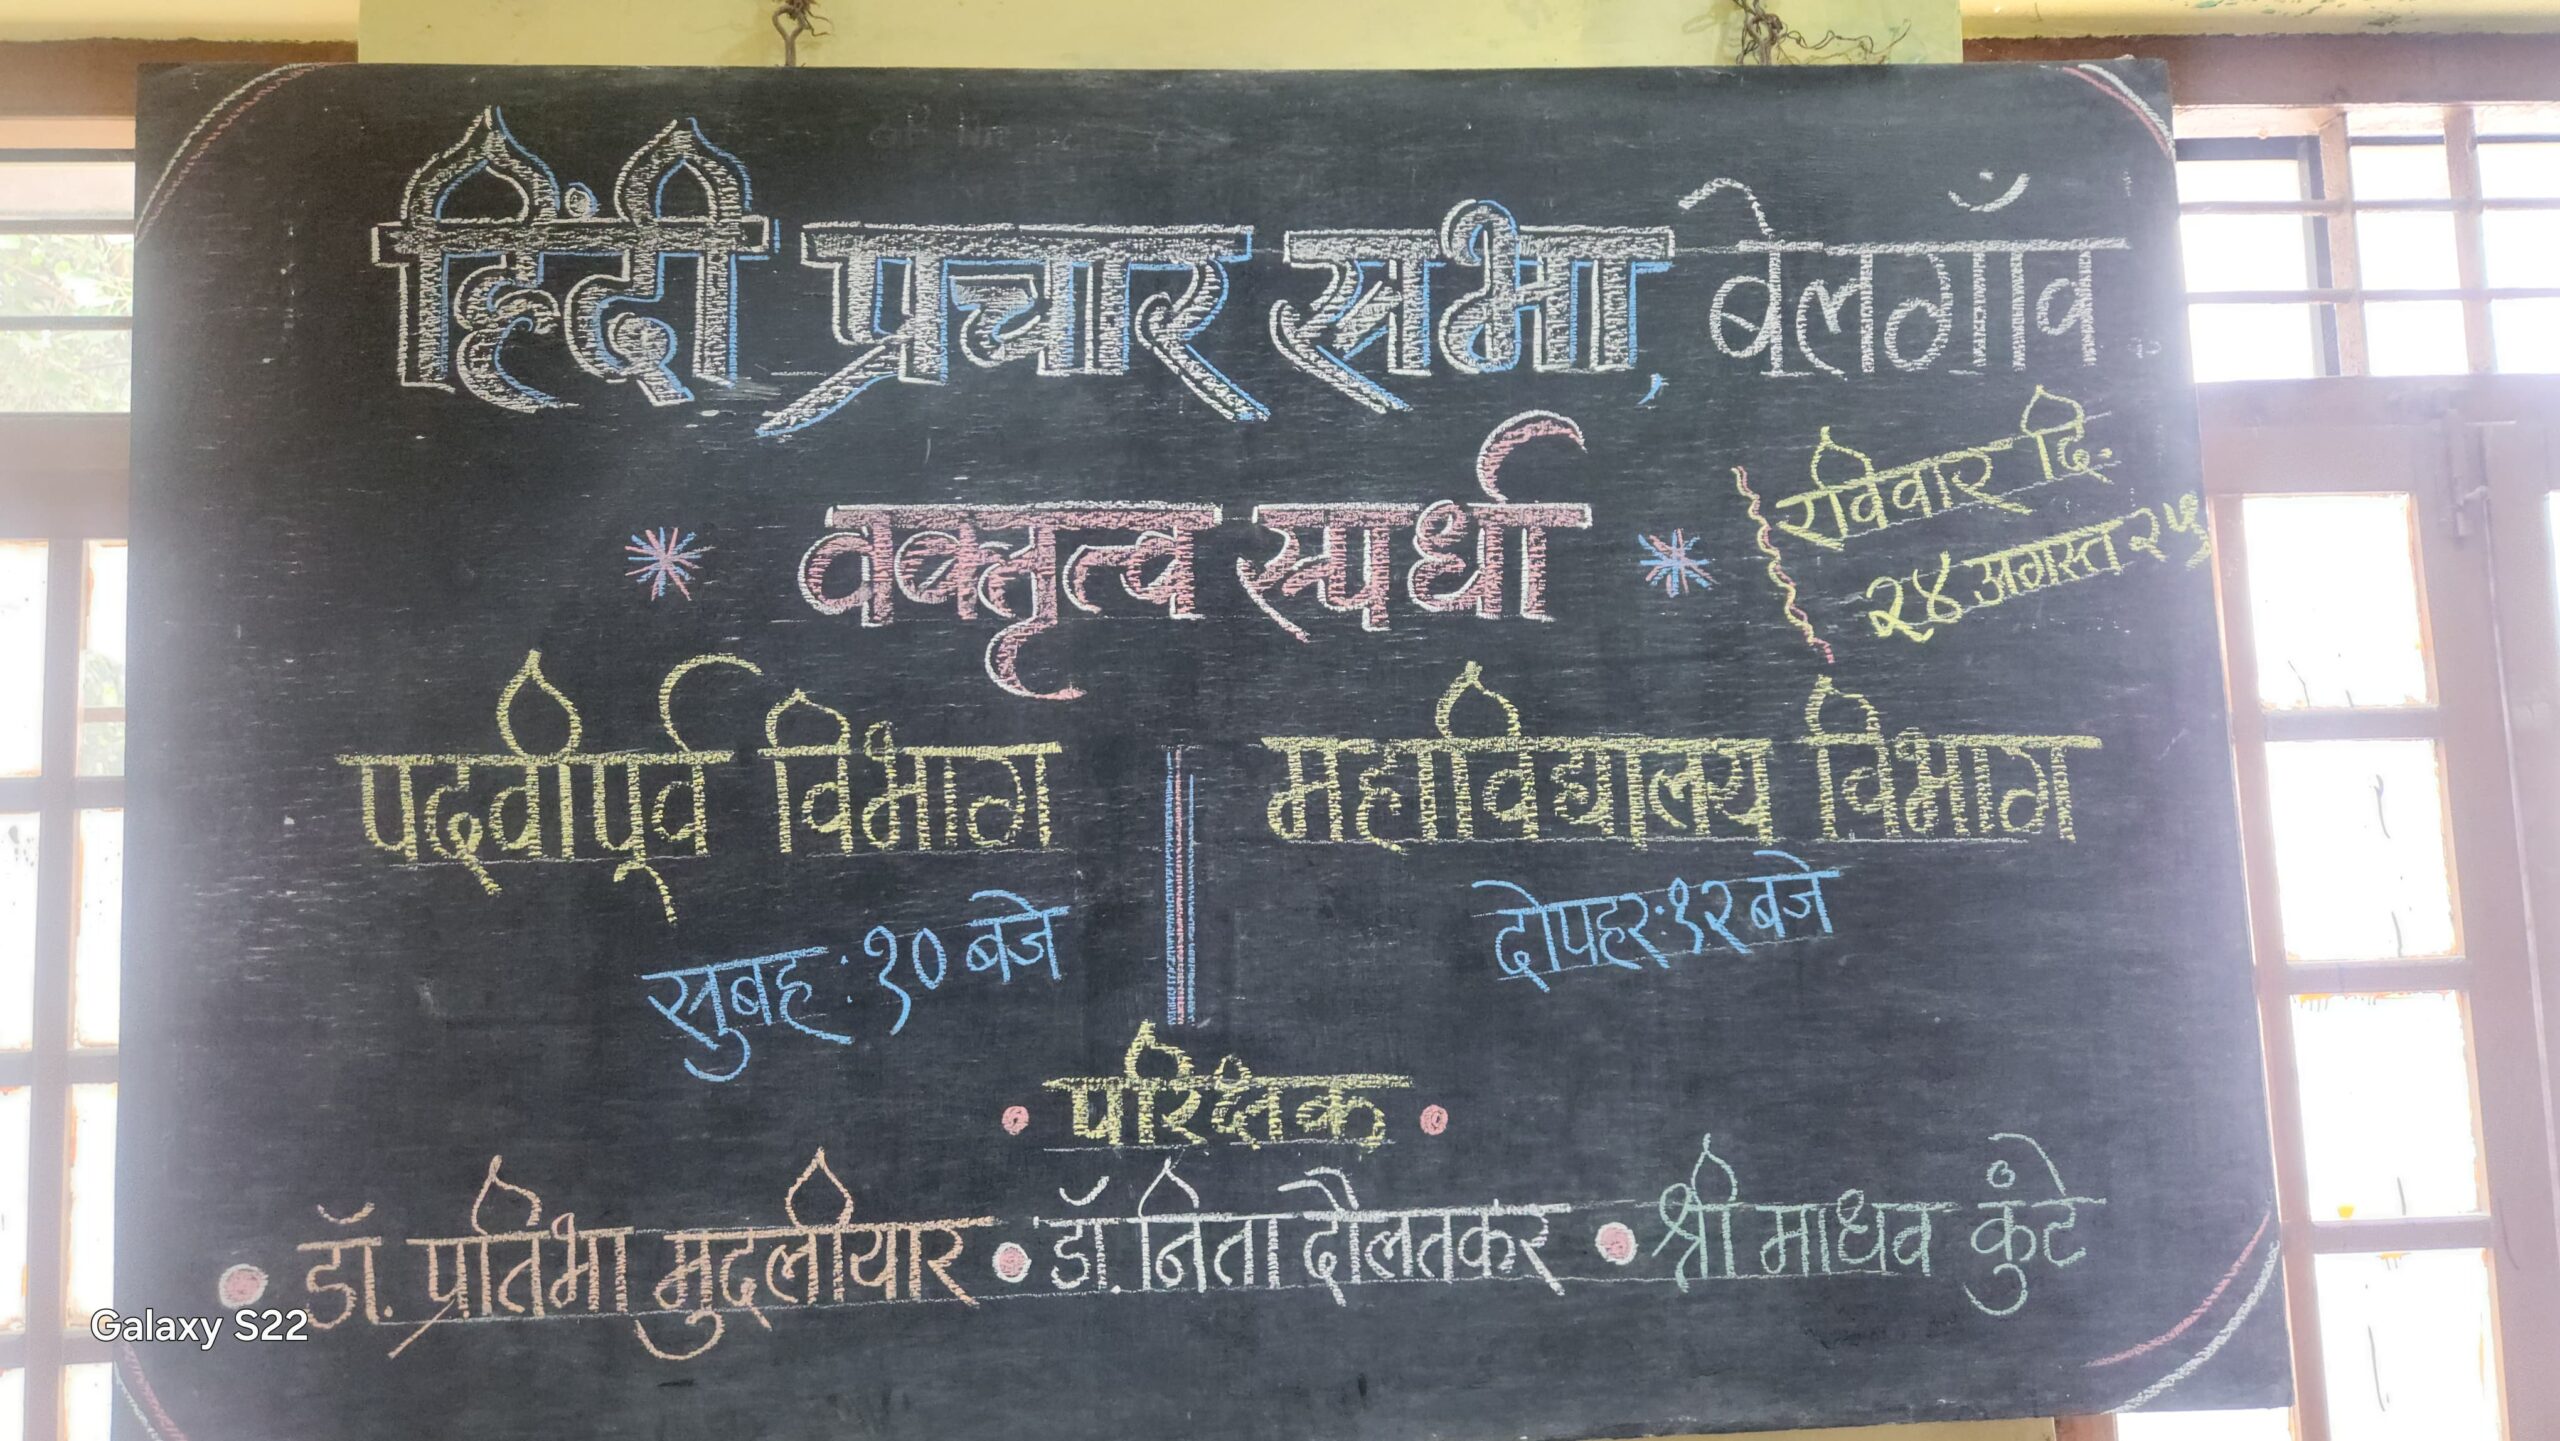 हिंदी प्रचार सभा, बेलगाँव
वक्तृत्व स्पर्धा
रविवार दि.
२४ अगस्त २५
पदवीपूर्व विभाग
महाविद्यालय विभाग
सुबह : १० बजे
दोपहर : १२ बजे
परिक्षक
डॉ. प्रतिभा मुदलीयार डॉ. निता दौलतकर श्री माधव कुंटे
Galaxy S22